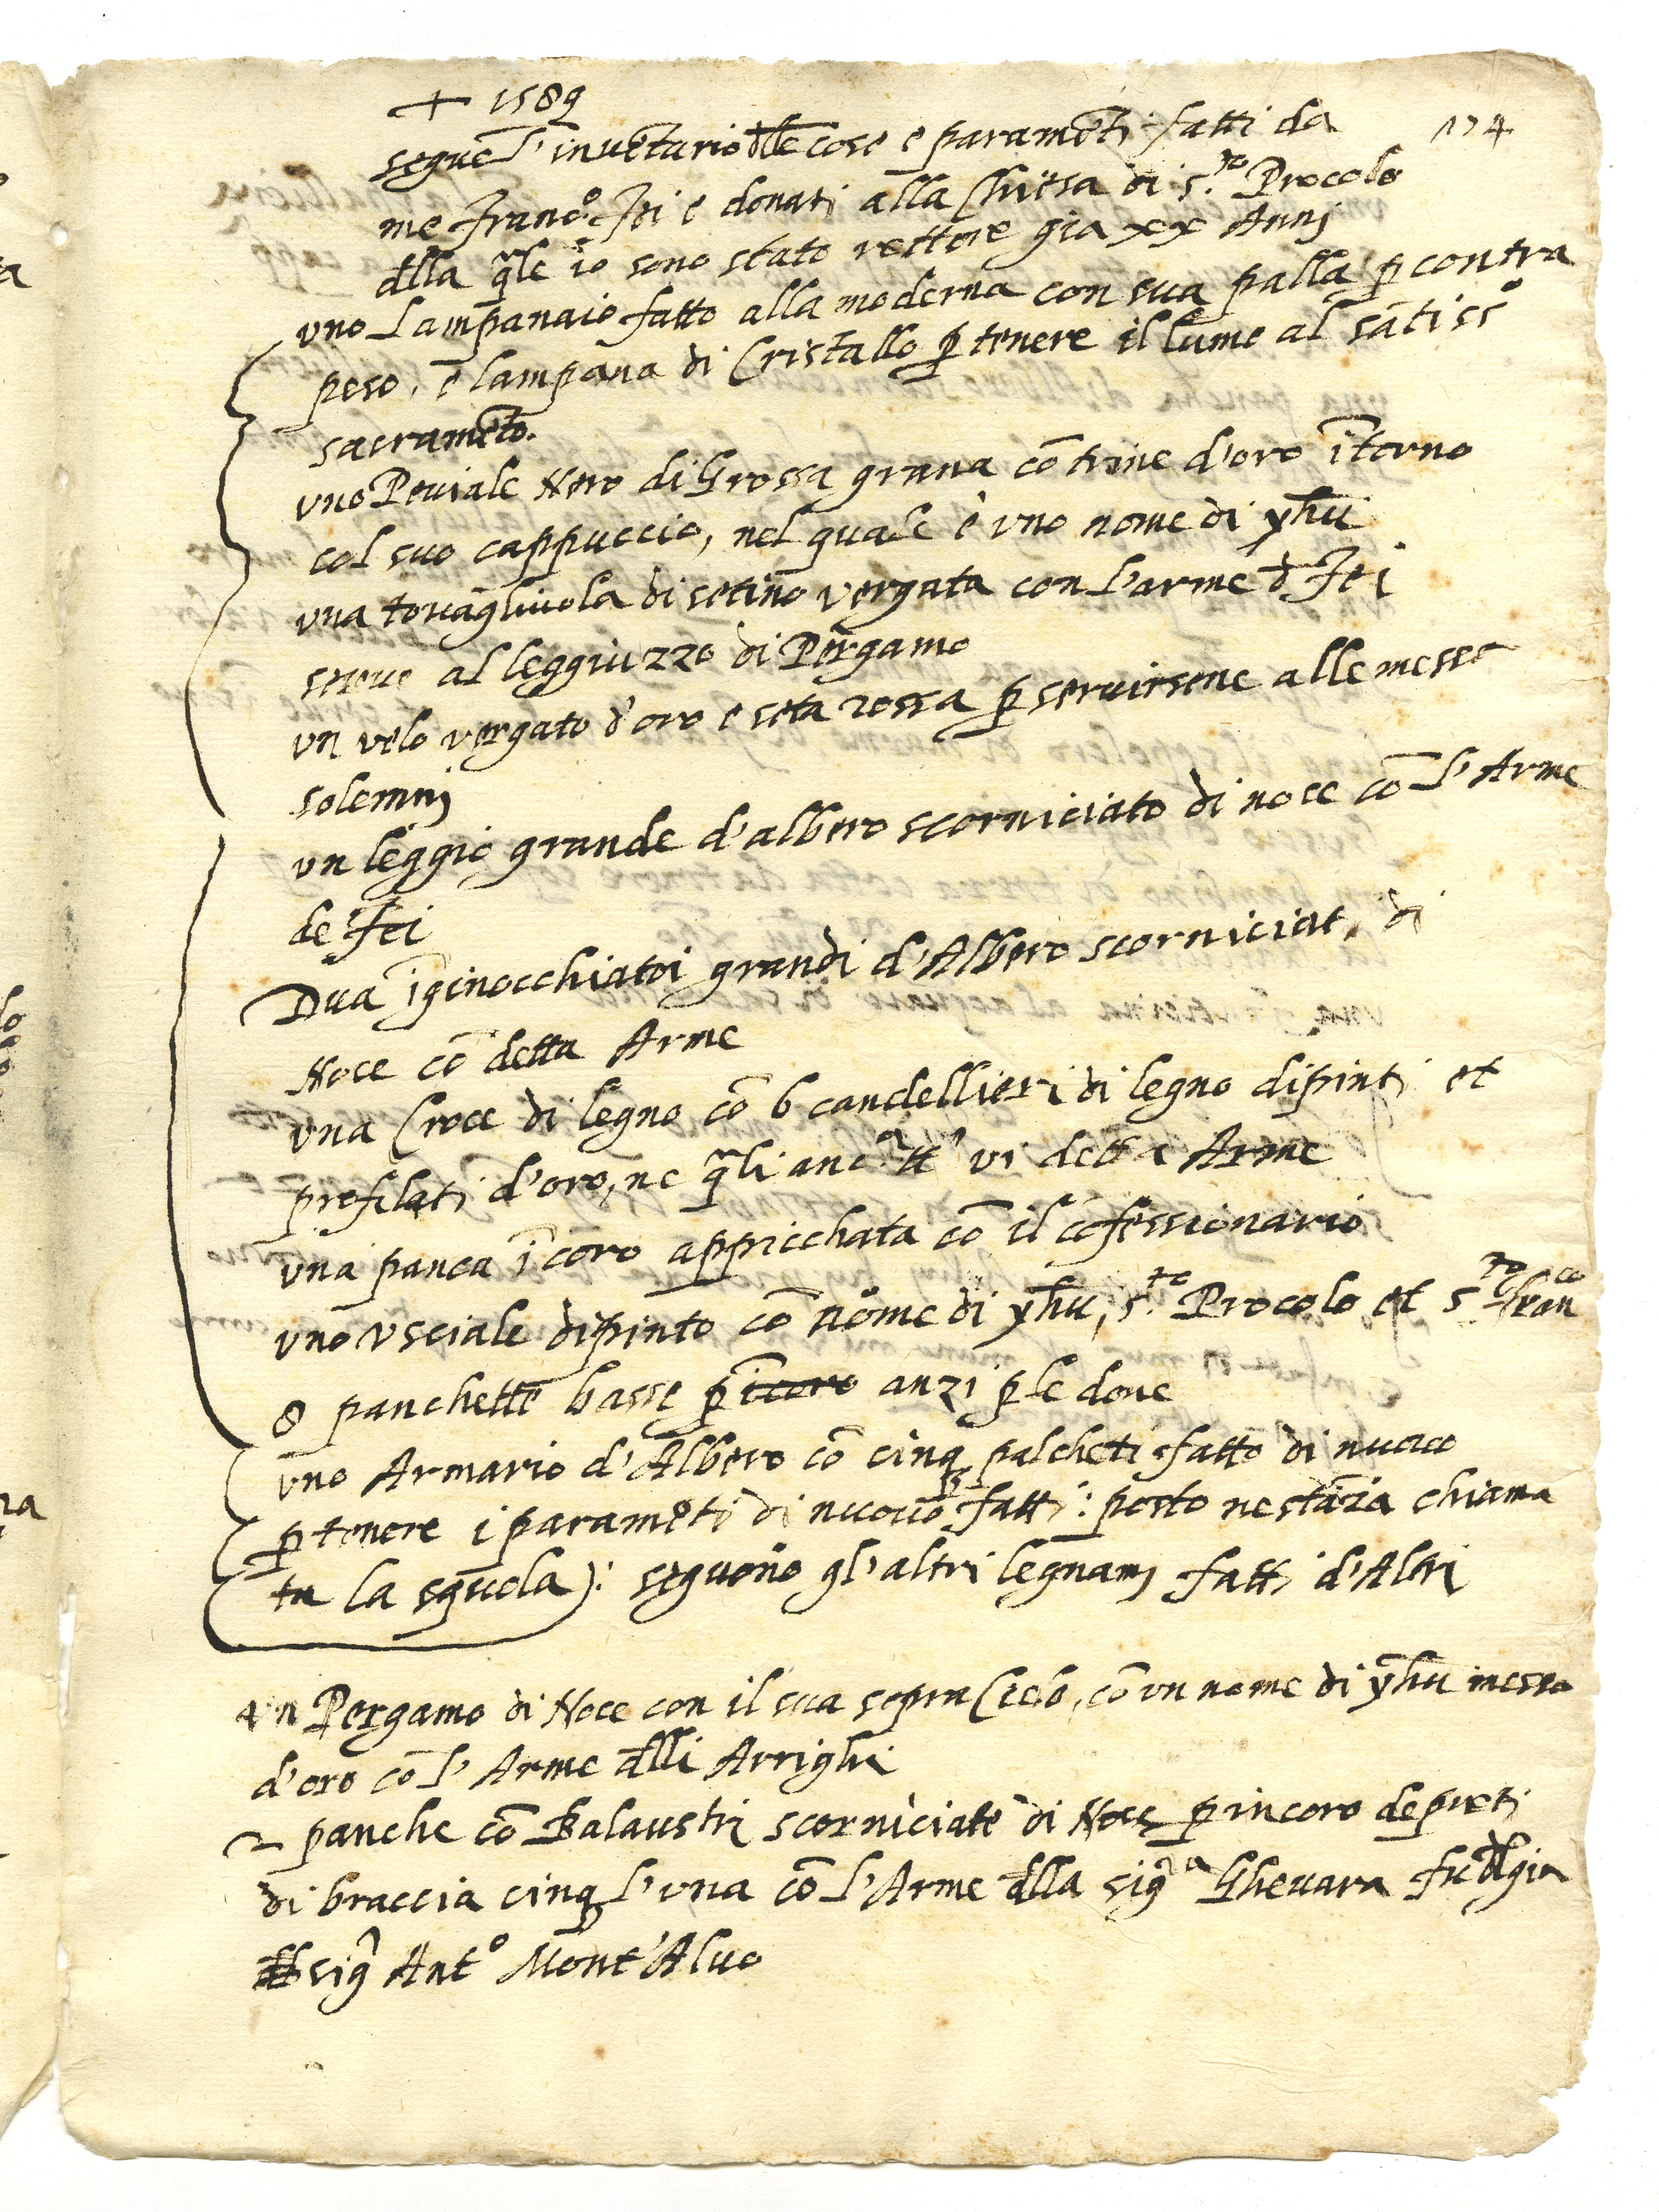 + 1589
174
segue l'inuētario dlle cose e paramēti fatti da
me Franc.º Fei e donati alla Chiesa di s.to Procolo
dlla q̃le io sono stato rettore gia xx Annj
uno Lampanaio fatto alla moderna con sua palla p̱ contra
peso, e lampana di Cristallo p̱ tenere il lume al sātissº
sacramēto.
uno Peuiale Nero di Grossa grana cō trine d'oro ītorno
col suo cappuccio, nel quale è uno nome di yh̄u
una touagliuola di setino vergata con l'arme d̄ Fei
serue al leggiuzzo di Pergamo
un uelo vergato d'oro e seta rossa p̱ seruirsene alle messe
solemnj
un leggio grande d'albero scorniciato di noce cō l'Arme
de Fei
Dua īginocchiatoi grandi d'Albero scorniciati di
Noce cō detta Arme
una Croce di legno cō 6 candellieri di legno dipinti et
profilati d'oro, ne q̃li anc.ª è vi detta Arme
una panca ī coro appicchata cō il cōfessionario
uno Usciale dipinto cō nome di yh̄u, s.to Procolo et s.to Franco
8 panchette basse p̱ ī coro anzi p̱ le dōne
uno Armario d'Albero cō cinq̱ palcheti fatto di nuouo
p̱ tenere i paramēti di nuouo fatti: posto ne stāzia chiama
ta la squola): seguono gl'altri legnamj fatti d'Altri
un Pergamo di Noce con il sua sopra Cielo, cō un nome di yh̄u messo
d'oro cō l'Arme dlli Arrighi
2 panche cō Balaustri scorniciate di Noce p̱ in coro de preti
di braccia cinq̱ l'una cō l'Arme dlla sig.ra Gheuara fu dl gia
sigr Antº Mont'Aluo